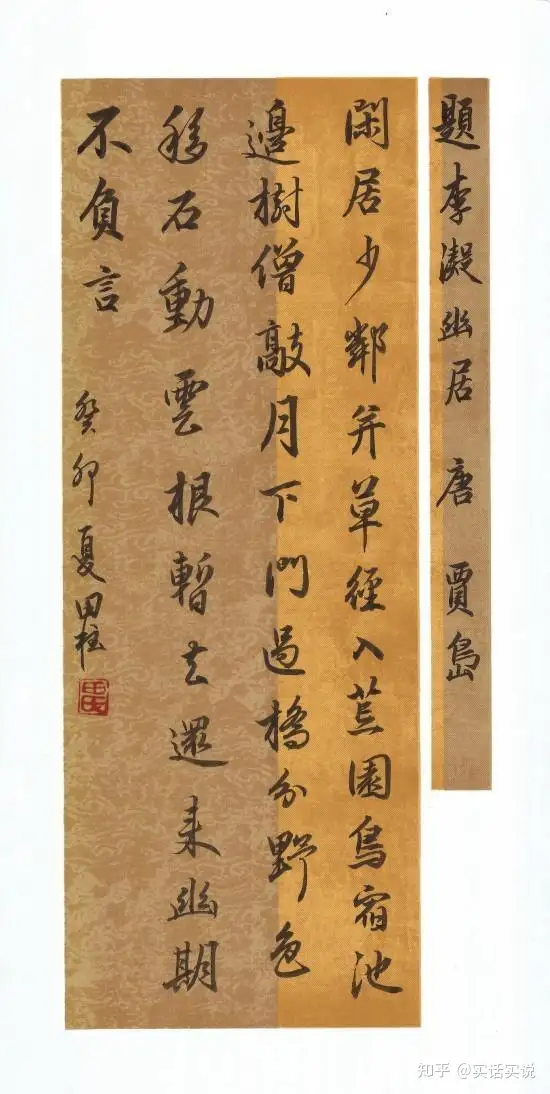 題李凝幽居 唐 賈島
閑居少鄰并草徑入荒園鳥宿池
邊樹僧敲月下門過橋分野色
移石動雲根暫去還来幽期
不負言
癸卯夏田柱
知乎 @实话实说